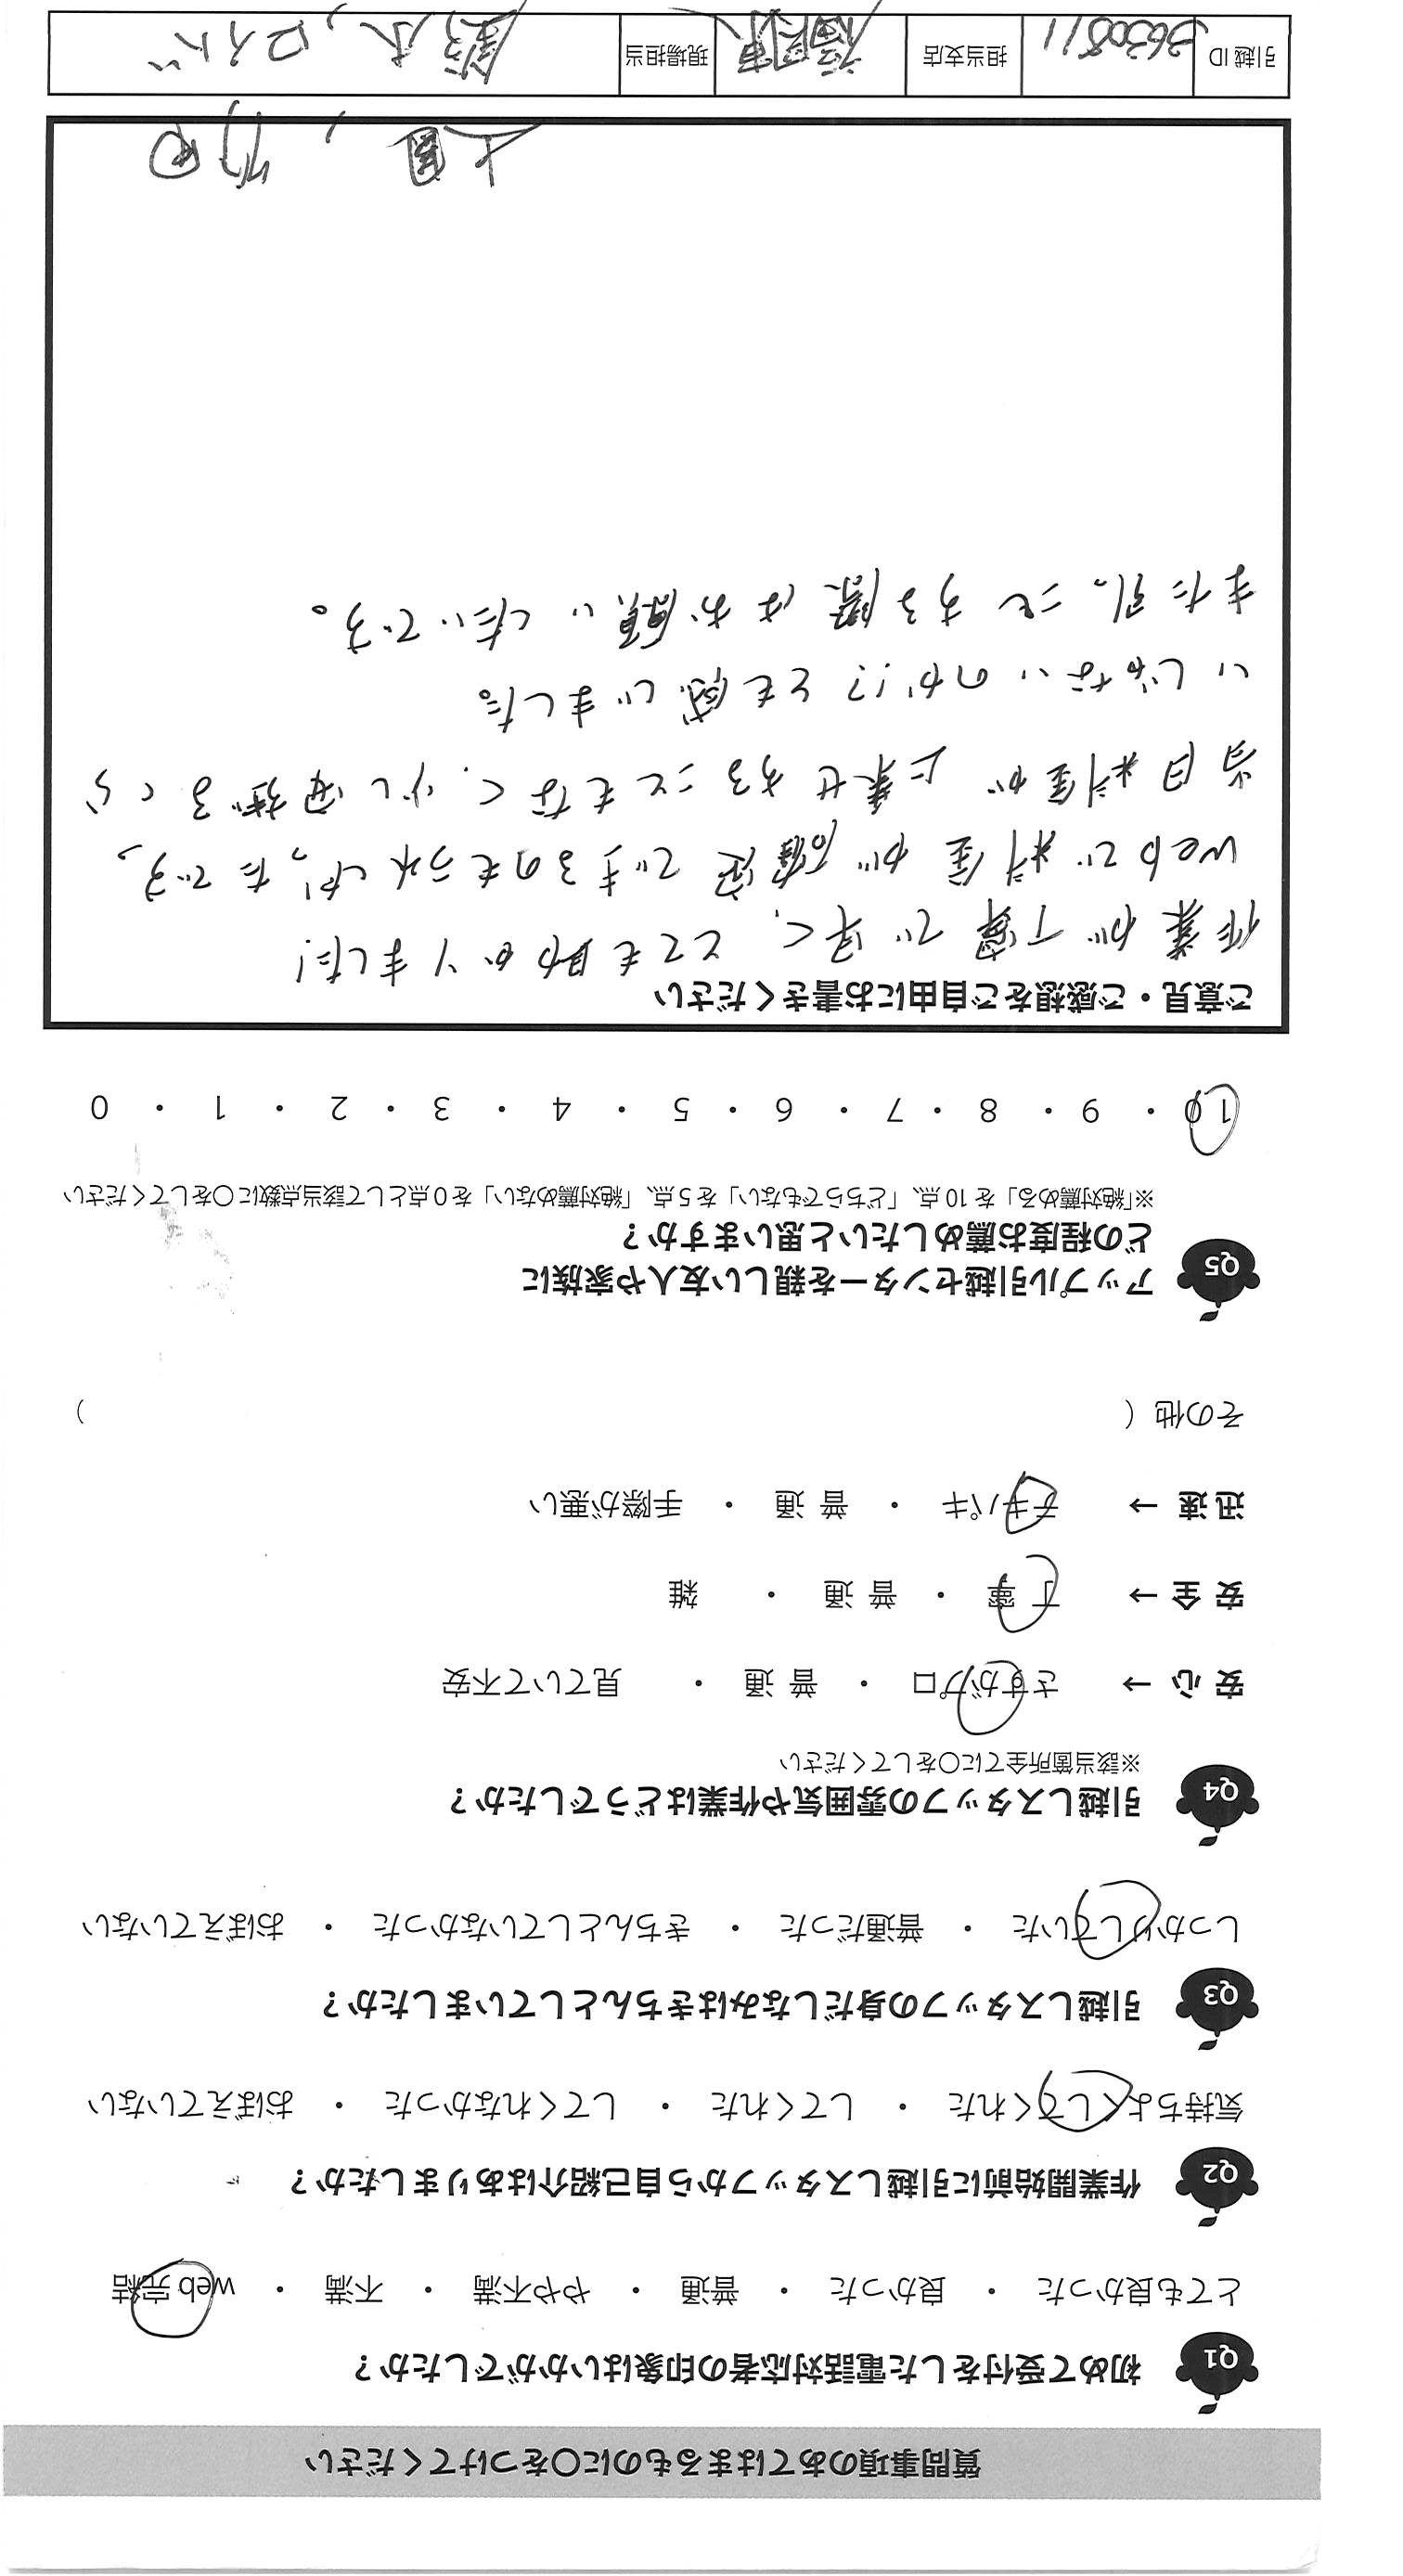 質問事項のあてはまるものに〇をつけてください
Q1 初めて受付をした電話対応者の印象はいかがでしたか？
とても良かった ・ 良かった ・ 普通 ・ やや不満 ・ 不満 ・ web 完結
Q2 作業開始前に引越しスタッフから自己紹介はありましたか？
気持ちよくしてくれた ・ してくれた ・ してくれなかった ・ おぼえていない
Q3 引越しスタッフの身だしなみはきちんとしていましたか？
しっかりしていた ・ 普通だった ・ きちんとしていなかった ・ おぼえていない
Q4 引越しスタッフの雰囲気や作業はどうでしたか？
※該当箇所全てに〇をしてください
安心 → さすがプロ ・ 普通 ・ 見ていて不安
安全 → 丁寧 ・ 普通 ・ 雑
迅速 → テキパキ ・ 普通 ・ 手際が悪い
その他（ ）
Q5 アップル引越センターを親しい友人や家族に
どの程度お薦めしたいと思いますか？
※「絶対薦める」を 10 点、「どちらでもない」を 5 点、「絶対薦めない」を 0 点として該当点数に〇をしてください
10 ・ 9 ・ 8 ・ 7 ・ 6 ・ 5 ・ 4 ・ 3 ・ 2 ・ 1 ・ 0
ご意見・ご感想をご自由にお書きください
作業が丁寧で早く、とても助かりました!
webで料金が確定できるのもうれしかったです、
当日料金が上乗せすることもなく、少し安すぎるくら
いじゃないのか!?とも感じました。
また引っこしする際はお願いしたいです。
上園, 竹田
引越 ID 3630811 担当支店 福岡東 現場担当 鈴木, ロイド